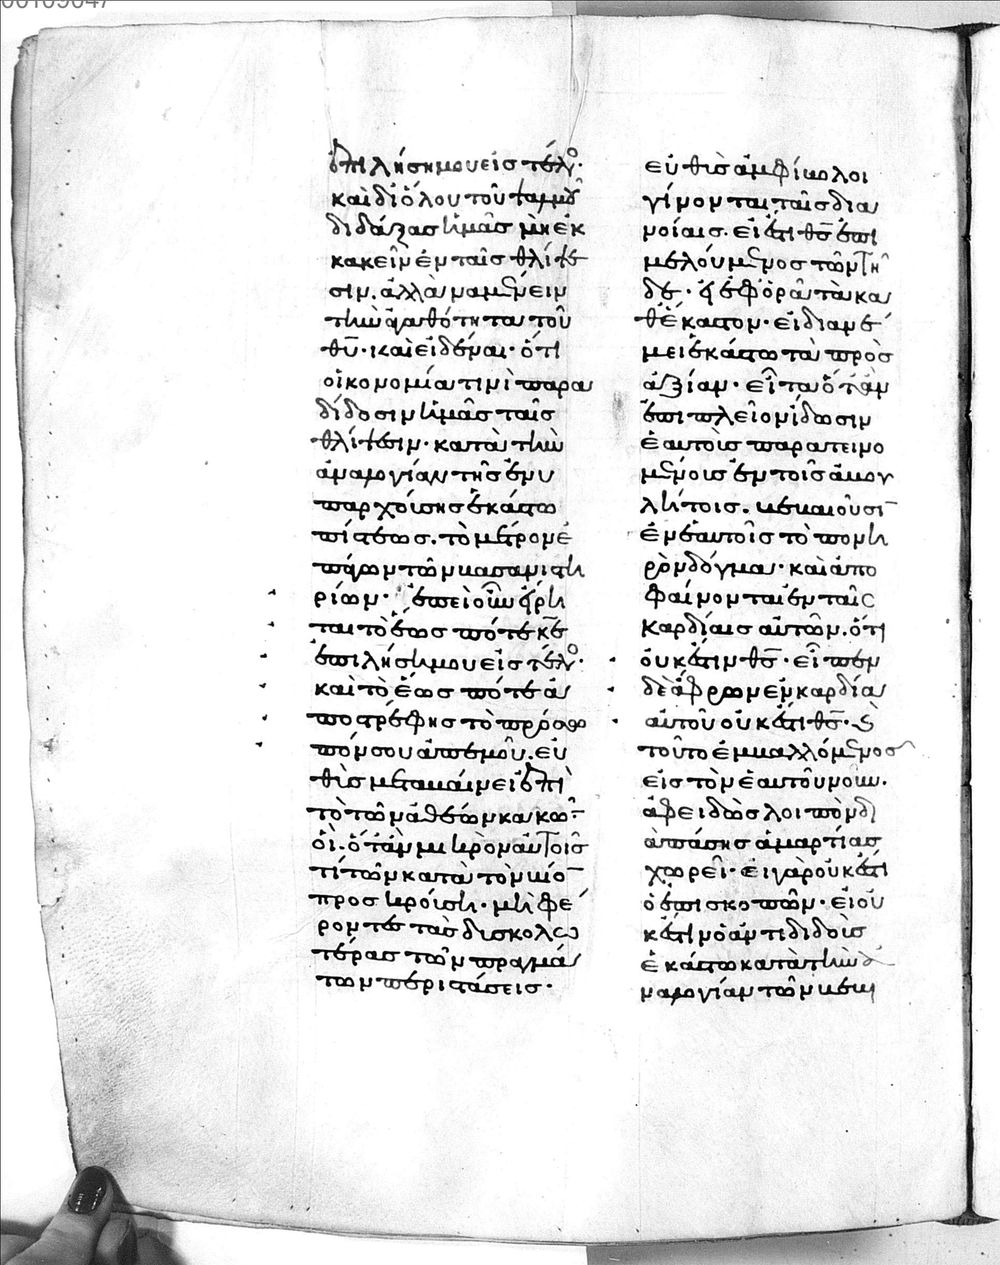 00109047
ἐπιλήσημου εἰς τέλος·
καὶ δι' ὅλου τοῦ ψαλμοῦ
διδάξας ἡμᾶς μὴ ἐκ
κακεῖν ἐν ταῖς θλίψε
σιν. ἀλλ' ἀναμένειν
τὴν ἀγαθότητα τοῦ
θυ̅· καὶ εἰδέναι· ὅτι
οἰκονομία τινὶ παρα
δίδοσιν ἡμᾶς ταῖς
θλίψεσιν· κατὰ τὴν
ἀναλογίαν τῆς ἐνυ
παρχούσης ἑκάστω
πίστεως. τὸ μέτρον ἐ
πάγων τῶν πασανιστη
ρίων· ἐπεὶ οὖν εἴρη
ται τὸ ἕως πότε κε̅
ἐπιλήσημου εἰς τέλος·
καὶ τὸ ἕως πότε ἀ
ποστρέφης τὸ πρόσω
πόν σου ἀπ' ἐμοῦ. εὐ
θὺς μεταβαίνει ἐπὶ
τὸ τῶν ἀθέων κακόν·
οἳ. ὅταν μικρὸν αὐτοῖς
τί τῶν κατὰ τὸν βίον
προσκρούση· μὴ φέ
ροντες τὰς δυσκολω
τέρας τῶν πραγμά
των περιστάσεις·
εὐθὺς ἀμφίβολοι
γίνονται ταῖς δια
νοίαις. εἰ ἔστι θς̅ ἐπι
μελούμενος τῶν τῆ
δε· εἰ ἐφορᾶ τὰ κα
θ' ἕκαστον· εἰ διανέ
μει ἑκάστω τὰ πρὸς
ἀξίαν· εἶτα ὅταν
ἐπιπλεῖον ἴδωσιν
ἑαυτοῖς παρατεινο
μένοις ἐν τοῖς ἀβου
λήτοις. βεβαιοῦσιν
ἐν ἑαυτοῖς τὸ πονη
ρὸν δόγμα· καὶ ἀπο
φαίνονται ἐν ταῖς
καρδίαις αὐτῶν. ὅτι
οὐκ ἔστιν θς̅· εἶπεν
δὲ ἄφρων ἐν καρδία
αὐτοῦ οὐκ ἔστι θς̅· καὶ
τοῦτο ἐμβαλλόμενος
εἰς τὸν ἑαυτοῦ νοῦν.
ἀφειδῶς λοιπὸν δι
ὰ πάσης ἁμαρτίας
χωρεῖ· εἰ γὰρ οὐκ ἔστι
ὁ ἐπισκοπῶν· εἰ οὐ
κ ἔστιν ὁ ἀνταποδιδοὺς
ἑκάστω κατὰ τὴν ἀ
ναλογίαν τῶν βεβι